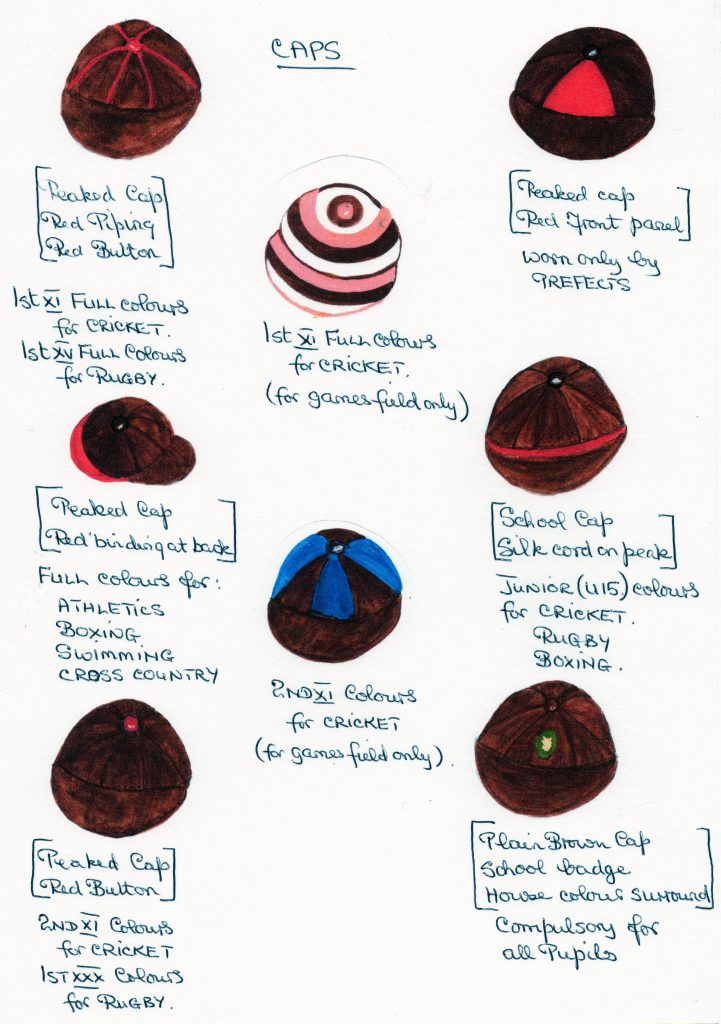 CAPS
Peaked Cap
Red Piping
Red Button
1st XI Full colours
for CRICKET.
1st XV Full Colours
for RUGBY.
1st XI Full Colours
for CRICKET.
(for games field only)
Peaked cap
Red Front panel
worn only by
PREFECTS
Peaked Cap
Red binding at back
Full colours for:
ATHLETICS
BOXING
SWIMMING
CROSS COUNTRY
2ND XI Colours
for CRICKET
(for games field only).
School Cap
Silk cord on peak
JUNIOR (U15) colours
for CRICKET.
RUGBY
BOXING.
Peaked Cap
Red Button
2ND XI Colours
for CRICKET
1ST XXX Colours
for RUGBY.
Plain Brown Cap
School badge
House colour surround
Compulsory for
all Pupils